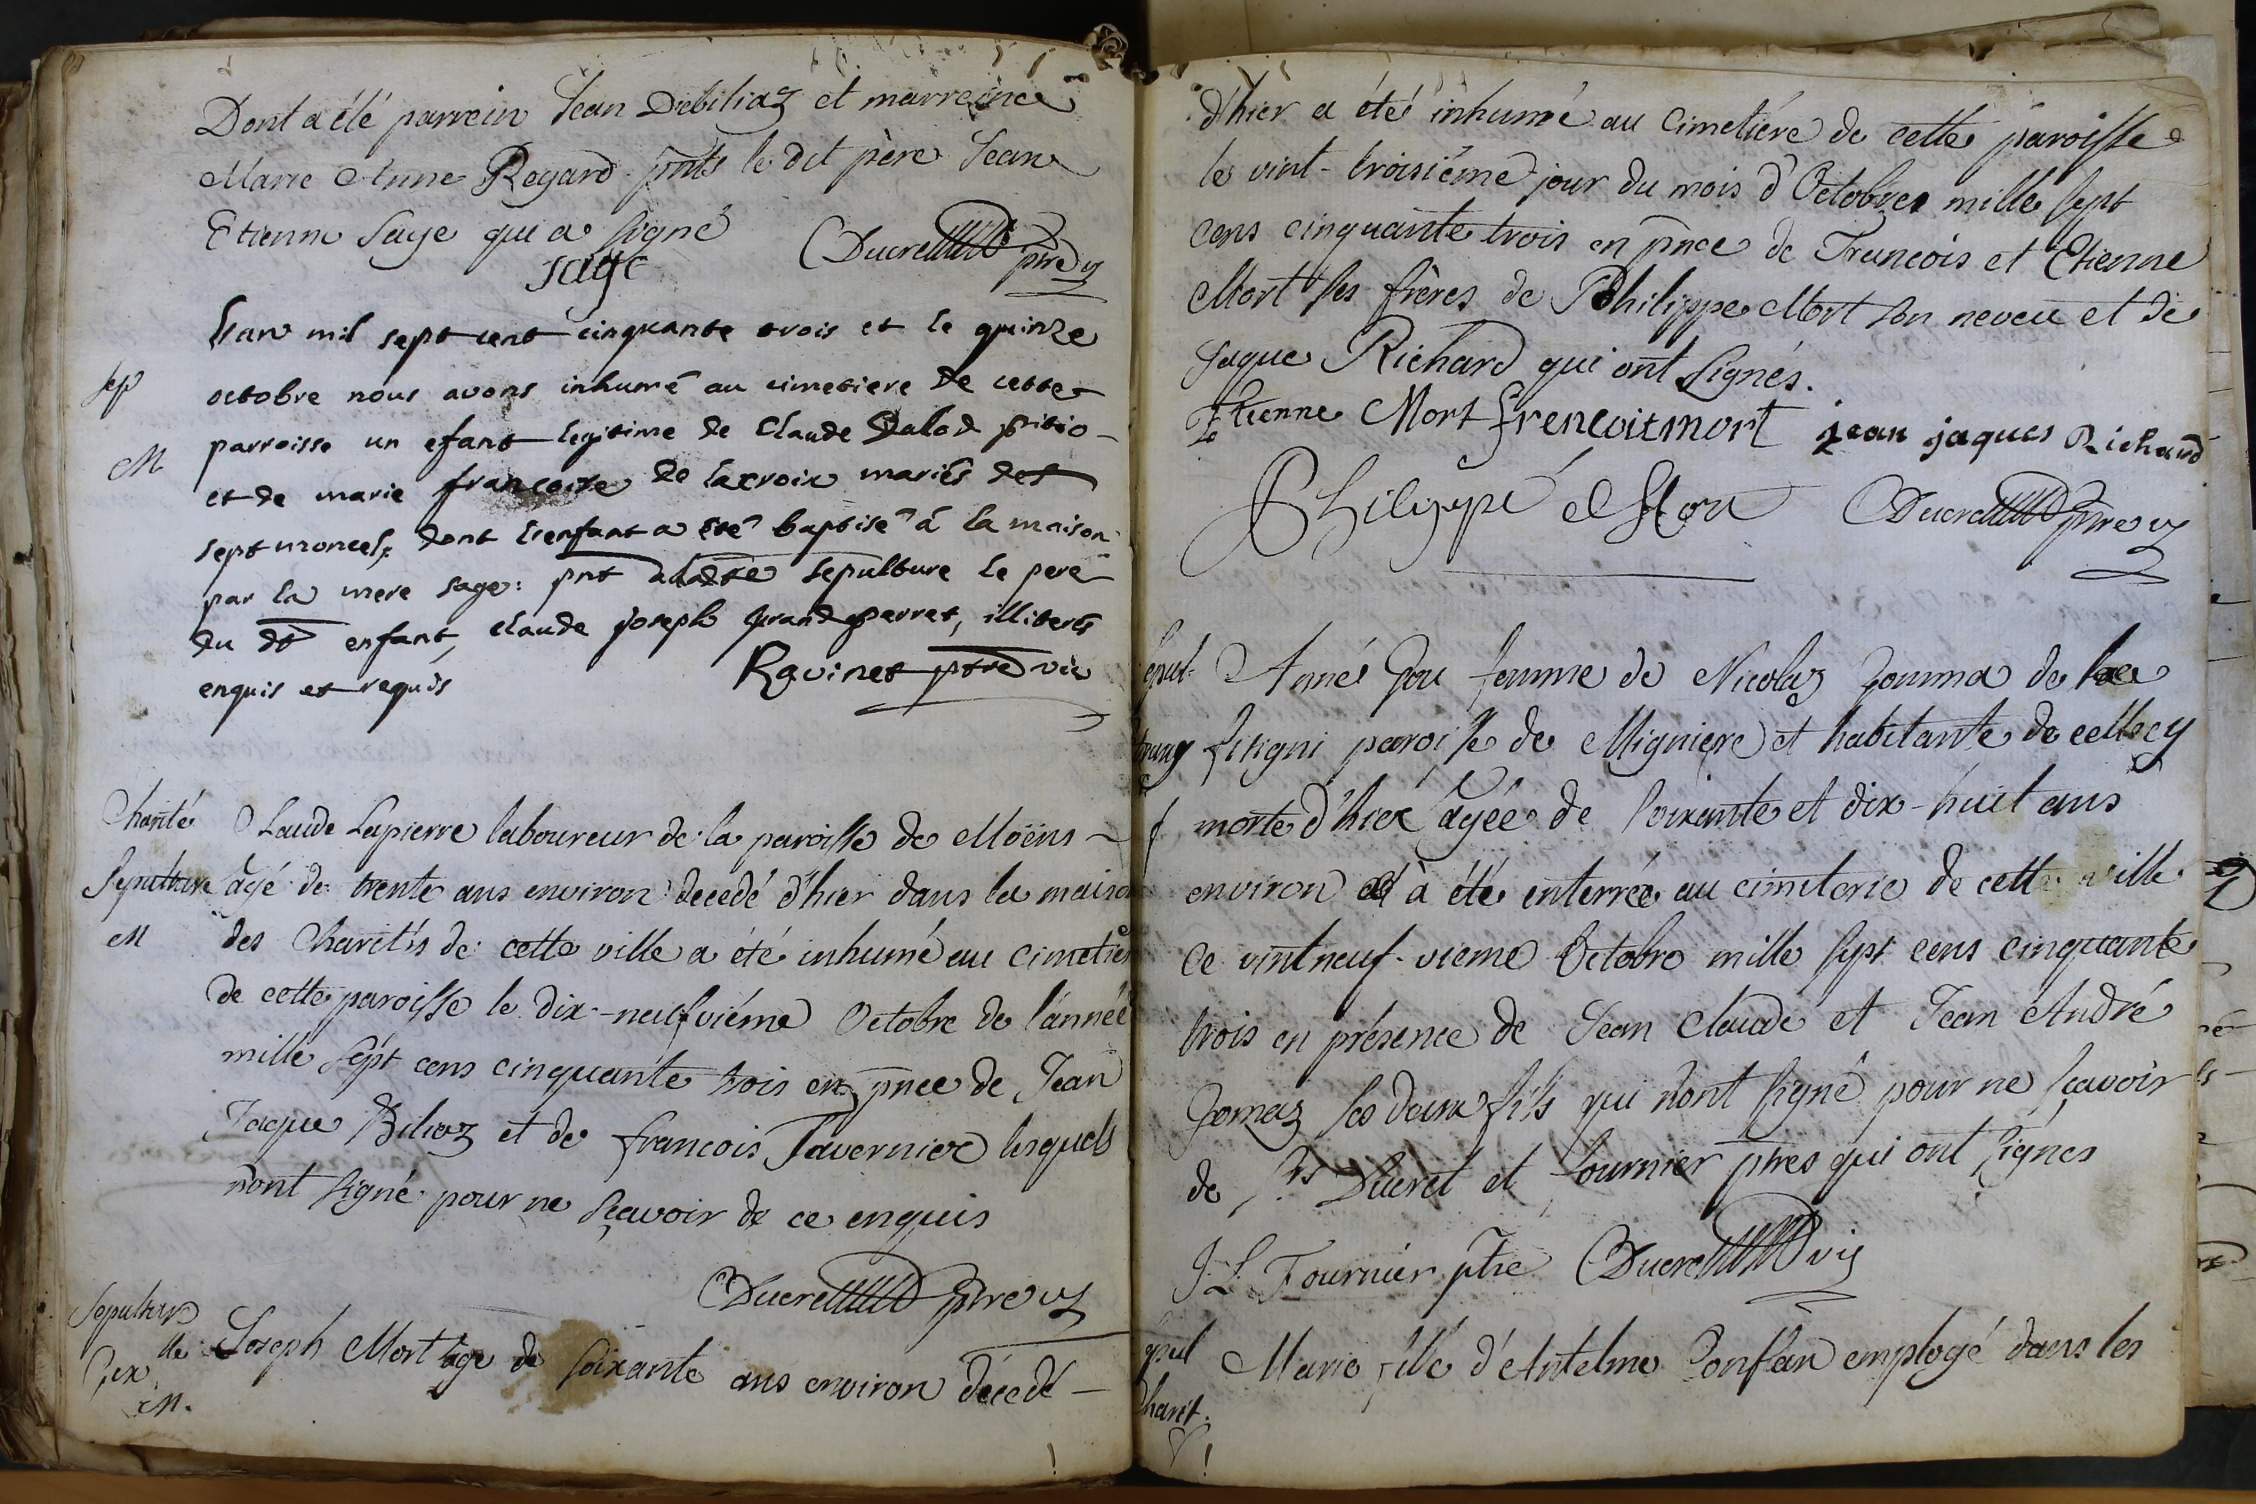 Dont a été parrein Jean Debiliaz et marreine
Marie Anne Regard pnts le dit père Jean
Etienne Saye qui a signé
saye
Ducret ptre v
Sep
M
L'an mil sept cent cinquante trois et le quinze
octobre nous avons inhumé au cimetiere de cette
parroisse un efant legitime de Claude Dalod
et de marie françoise de lacroix mariés de
septmoncel, dont l'enfant a été baptisé à la maison
par la mere sage: pnt a ladte sepulture le pere
du dt enfant, claude joseph grandperret, illiterés
enquis et requis
Ravinet ptre vic
Charité
Sepulture
M
Claude Lapierre laboureur de la paroisse de Moëns
âgé de trente ans environ decedé d'hier dans la maison
des Charités de cette ville a été inhumé au cimetier
de cette paroisse le dix-neufviéme Octobre de l'année
mille sept cens cinquante trois en pnce de Jean
Jaque Biliaz et de francois Tavernier lesquels
n'ont signé pour ne sçavoir de ce enquis
Ducret ptre v
Sepulture
de
Gex
M.
Joseph Mort age de soixante ans environ décedé
d'hier a été inhumé au Cimetiére de cette paroisse
le vint-troisiéme jour du mois d'Octobre mille sept
cens cinquante trois en pnce de Francois et Etienne
Mort ses frères de Philippe Mort son neveu et de
Jaque Richard qui ont signés.
Etienne Mort frencoit mort jean jaques Richard
Philippe Mort Ducret ptre v
épul.
f
Anné Gou femme de Nicolaz Gomma de
paroisse de Migniere et habitante de celle cy
morte d'hier âgée de soixante et dix-huit ans
environ à été enterrée au cimeterie de cette ville
Ce vintneuf-vieme Octobre mille sept cens cinquante
trois en présence de Jean Claude et Jean André
Gomaz ses deux fils qui n'ont signé pour ne sçavoir
de Rs Ducret et fournier ptres qui ont signés
J. L. Fournier ptre Ducret vi
épul
Charit.
Marie fille d'Antelme Conflan employé dans les